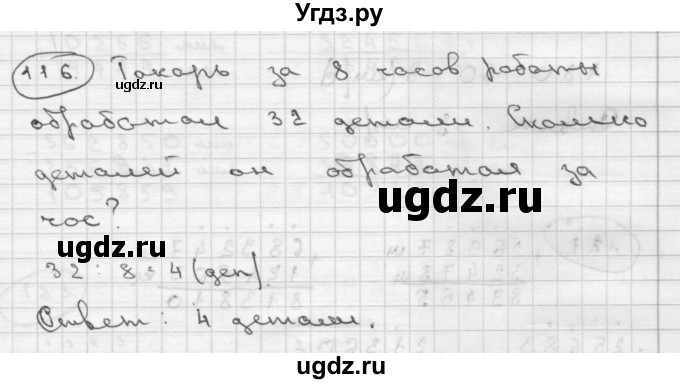 Угдз.ру
116. Токарь за 8 часов работы
обработал 32 детали. Сколько
деталей он обработал за
час?
32 : 8 = 4 (дет)
Ответ: 4 детали.
ugdz.ru
ugdz.ru
ugdz.ru
ugdz.ru
ugdz.ru